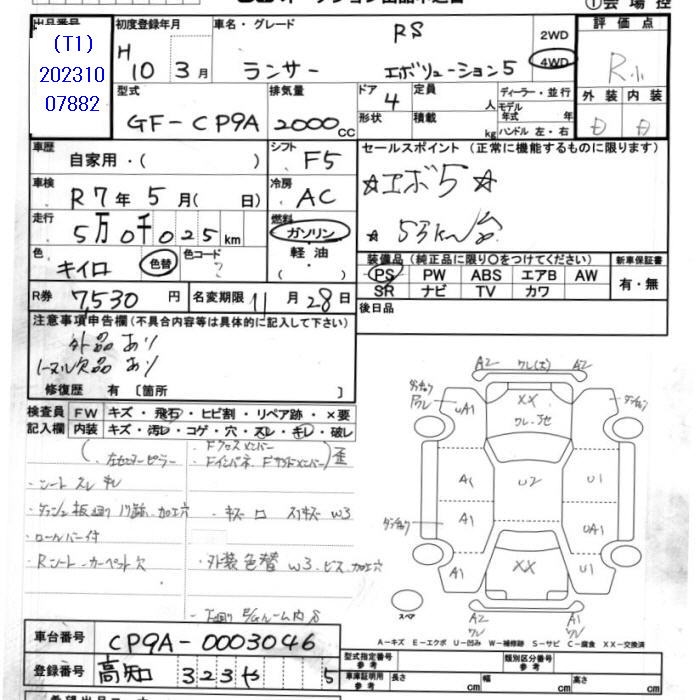 ①会場控
(T1)
202310
07882
初度登録年月
H 10 3月
車名・グレード
RS
ランサー エボリューション5
2WD
4WD
評価点
R小
外装 内装
D D
型式
GF-CP9A
排気量
2000cc
ドア
4
形状
定員
人
積載
kg
ディーラー・並行
モデル年式 年
ハンドル 左・右
車歴
自家用・( )
シフト
F5
セールスポイント(正常に機能するものに限ります)
☆エボ5☆
☆5万km台
車検
R7年5月( 日)
冷房
AC
走行
5万0千025km
燃料
ガソリン
軽油
色
キイロ
色替
色コード
装備品(純正品に限り○をつけてください)
PS PW ABS エアB AW
SR ナビ TV カワ
新車保証書
有・無
R券
7530円
名変期限 11月28日
後日品
注意事項申告欄(不具合内容等は具体的に記入して下さい)
外品あり
ノーマル欠品あり
修復歴 有 〔箇所 〕
検査員記入欄
FW キズ・飛石・ヒビ割・リペア跡・×要
内装 キズ・汚レ・コゲ・穴・スレ・キレ・破レ
左右センターピラー
Fクロスメンバー
Fインパネ Fサイドメンバー 歪
・シート スレ キレ
・ダッシュ板廻り 川跡 加工穴
・ロールバー付
・Rシート・カーペット欠
・外装色替 W3 ビス・加工穴
A2 ワレ(大) A2
UA1
XX
A1
U2
U1
A1
UA1
A1
XX
U1
スペア
A2
ワレ
A1
ワレ
A-キズ E-エクボ U-凹み W-補修跡 S-サビ C-腐食 XX-交換済
車台番号
CP9A-0003046
登録番号
高知 323 や 5
型式指定番号
参考
類別区分番号
参考
車庫証明用
参考
長さ cm 幅 cm 高さ cm